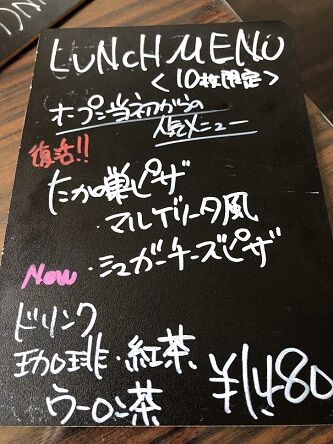 LUNCH MENU
<10枚限定>
オープン当初からの
人気メニュー
復活!!
たカの巣ピザ
・マルゲリータ風
New ・シュガーチーズピザ
ドリンク
珈琲・紅茶
ウーロン茶
¥1,480